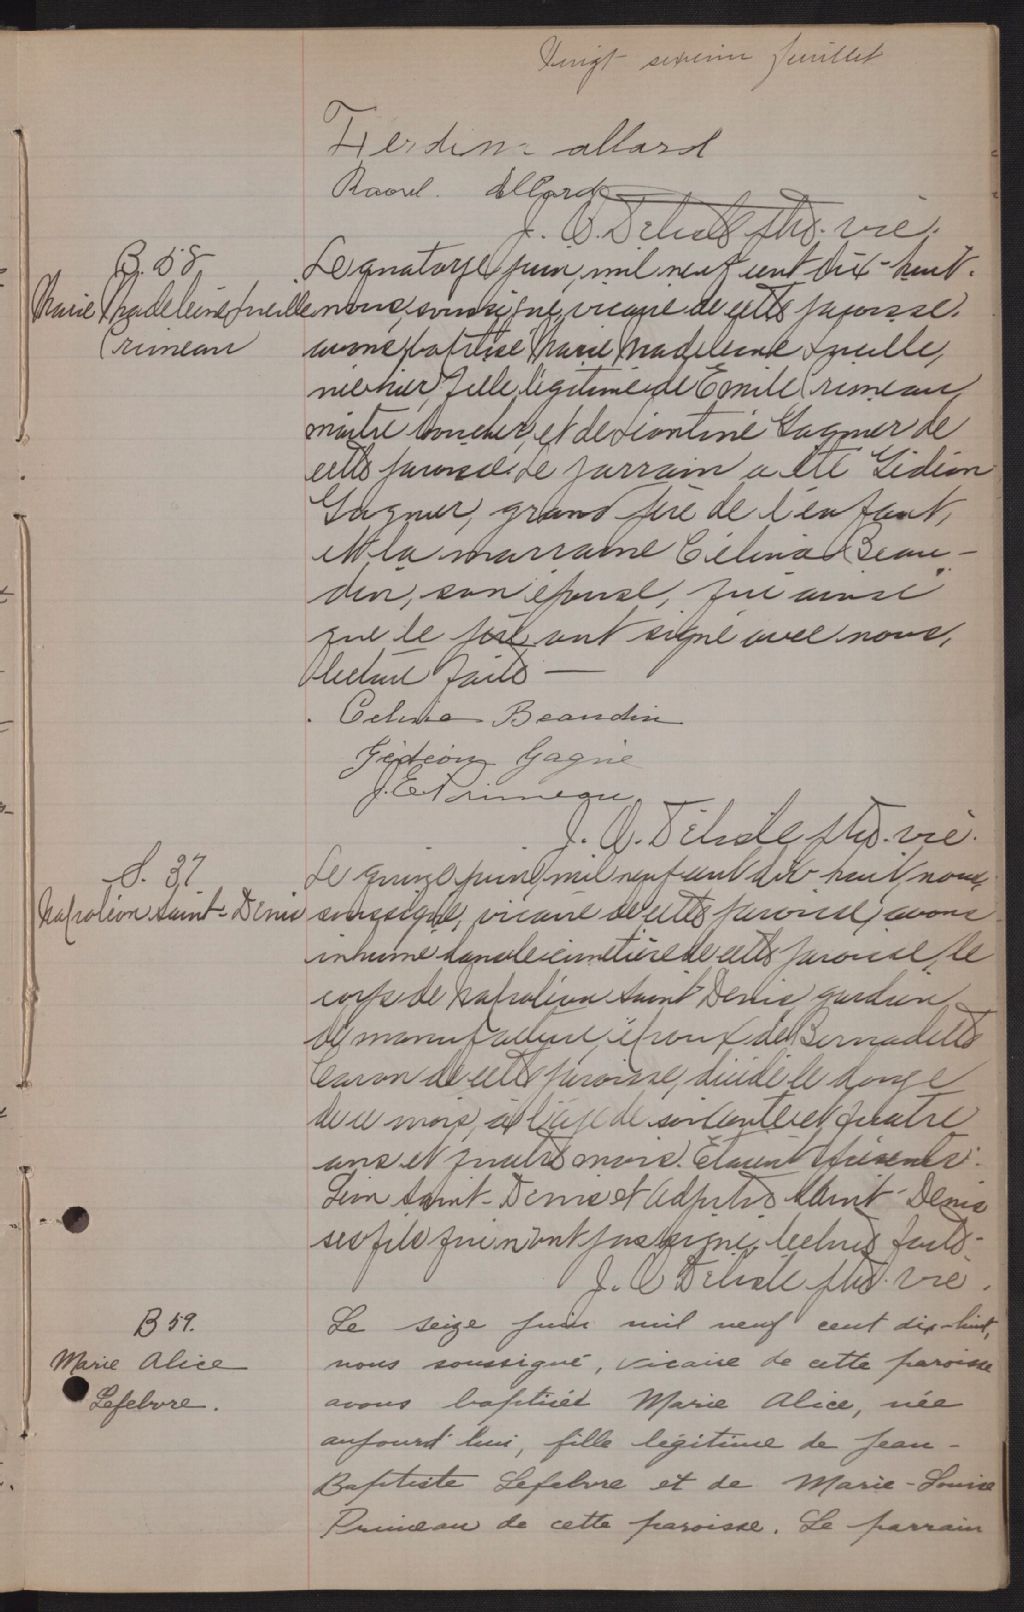 Vingt sixième feuillet
Ferdin- allard
Raoul. Allard
J. O. Delisle ptre. vic.
B. 58
Marie Madeleine Lucille
Primeau
Le quatorze juin, mil neuf cent dix-huit.
nous, soussigné, vicaire de cette paroisse.
avons baptisé Marie Madeleine Lucille,
née hier, fille légitime de Emile Primeau,
maître boucher, et de Léontine Gagner de
cette paroisse. Le parrain a été Gédéon
Gagner, grand père de l'enfant,
et la marraine Célina Beau-
din, son épouse, qui ainsi
que le père ont signé avec nous,
lecture faite —
Celina Beaudin
Gédéon Gagné
J. E. Primeau
J. O. Delisle ptre. vic.
S. 37
Napoléon Saint-Denis
Le quinze juin, mil neuf cent dix huit, nous,
soussigné, vicaire de cette paroisse, avons
inhumé dans le cimetière de cette paroisse, le
corps de Napoléon Saint Denis, gardien
de manufacture, époux de Bernadette
Caron de cette paroisse, décédé le douze
de ce mois, à l'âge de soixante et quatre
ans et quatre mois. Étaient présents:
Léon Saint-Denis et Saint-Denis
ses fils qui n'ont pas signé, lecture faite-
J. O Delisle ptre. vic.
B 59.
Marie Alice
Lefebvre.
Le seize juin mil neuf cent dix-huit,
nous soussigné, vicaire de cette paroisse
avons baptisés Marie Alice, née
aujourd'hui, fille légitime de Jean-
Baptiste Lefebvre et de Marie-Louise
Primeau de cette paroisse. Le parrain